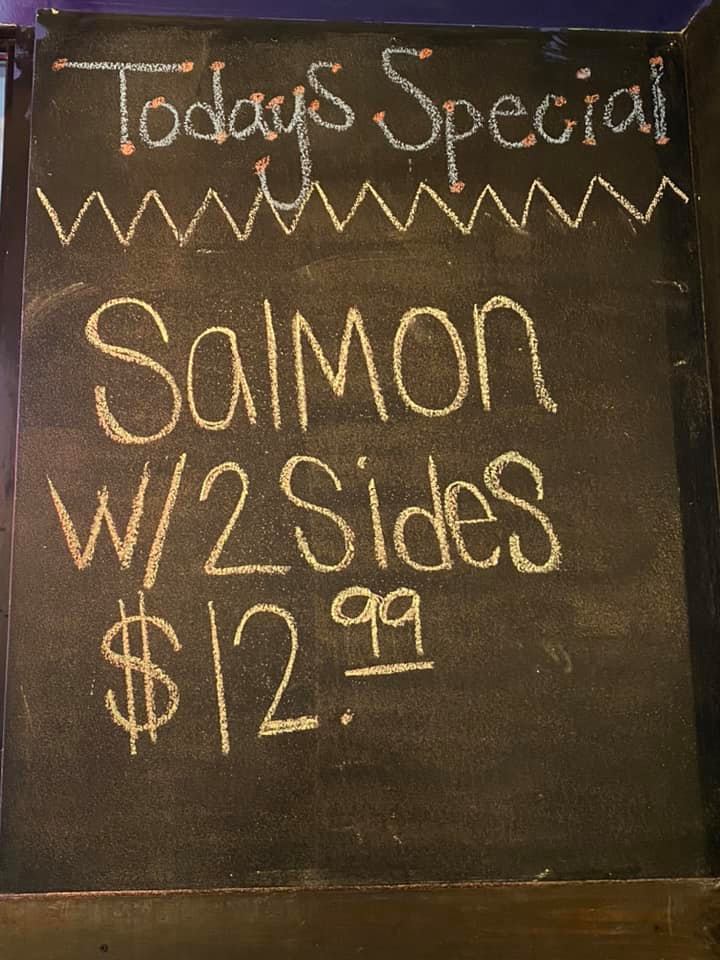 Todays Special
Salmon
W/2 Sides
$12.99